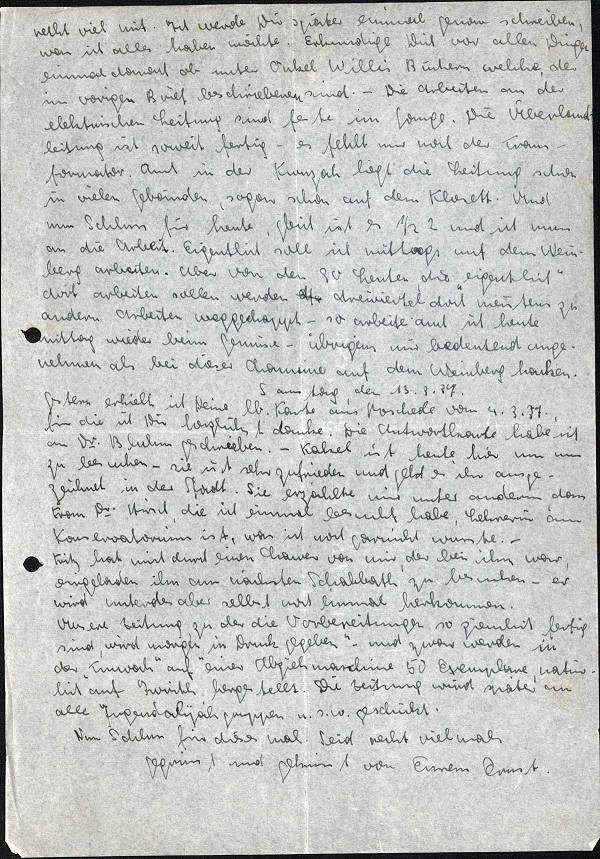 recht viel mit. Ich werde Dir später einmal genau schreiben,
was ich alles haben möchte. Erkundige Dich vor allen Dingen
einmal darnach ob unter Onkel Willis Büchern welche, der
im vorigen Brief beschriebenen sind. – Die Arbeiten an der
elektrischen Leitung sind feste im Gange. Die Überland-
leitung ist soweit fertig – es fehlt nur noch der Trans-
formator. Auch in der Kwuzah liegt die Leitung schon
in vielen Gebäuden, sogar schon auf dem Klosett. Und
nun Schluss für heute, gleich ist es 1/2 2 und ich muss
an die Arbeit. Eigentlich soll ich mittags auf dem Wein-
berg arbeiten. Aber von den 30 Leuten die "eigentlich"
dort arbeiten sollen werden dreiviertel dort meistens zu
andern Arbeiten weggeschnappt – so arbeite auch ich heute
mittag wieder beim Gemüse – übrigens mir bedeutend ange-
nehmer als bei dieser Chamsine auf dem Weinberg hacken.
Samstag, den 13.3.37.
Gestern erhielt ich Deine lb. Karte aus vom 4.3.37,
für die ich Dir herzlichst danke. Die Antwortkarte habe ich
an Dr. Bluhm geschrieben. – ist heute hier um uns
zu besuchen – sie ist sehr zufrieden und geht es ihr ausge-
zeichnet in der Stadt. Sie erzählte mir unter anderem dass
Frau Dr. Hirsch, die ich einmal besucht habe, Lehrerin am
Konservatorium ist, was ich noch garnicht wusste. –
Fritz hat mich durch einen Chawer von mir, der bei ihm war,
eingeladen ihn am nächsten Schabbath zu besuchen – er
wird unterdes aber selbst noch einmal herkommen.
Unsere Zeitung zu der die Vorbereitungen so ziemlich fertig
sind wird morgen "in Druck gegeben" – und zwar werden in
der auf einer Abziehmaschine 50 Exemplare, natür-
lich auf Iwrith, hergestellt. Die Zeitung wird später an
alle Jugendalijahgruppen u.s.w. geschickt.
Nun Schluss für dieses mal. Seid recht vielmals
gegrüsst und geküsst von Eurem Ernst.